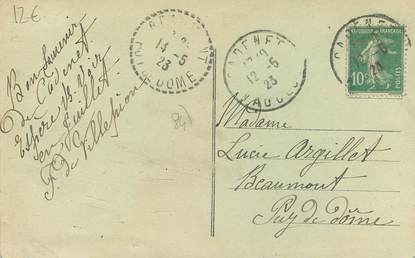 12€
Bon Souvenir
de Cadenet
Espère B. Voir
en Juillet
F. de Villespion
BEAUMONT
14-5
23
PUY DE DOME
CADENET
12-5
23
VAUCLUSE
REPUBLIQUE FRANÇAISE
10c
POSTES
84
Madame
Lucie Argillet
Beaumont
Puy de Dôme